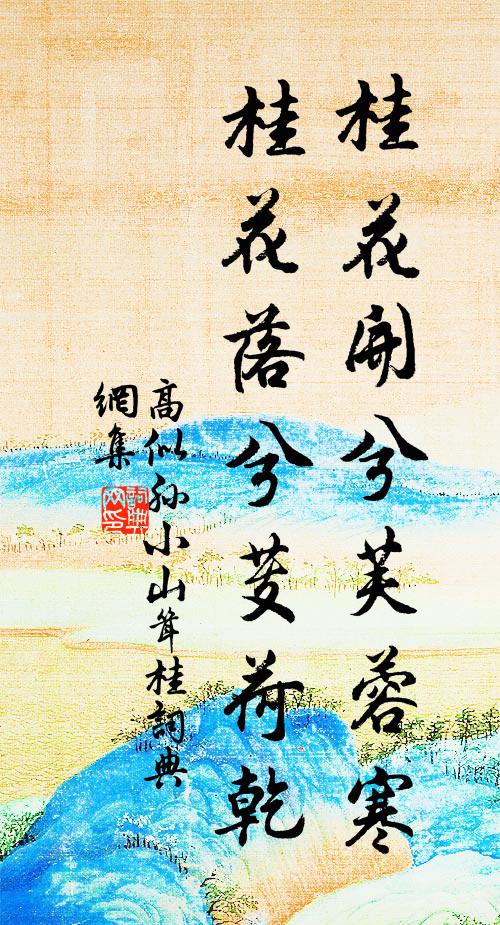 桂花開兮芙蓉寒
桂花落兮芰荷乾
高似孫小山聳桂詞典
網集